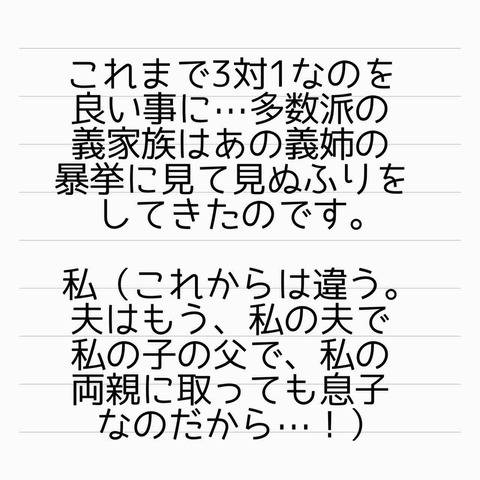 これまで3対1なのを
良い事に…多数派の
義家族はあの義姉の
暴挙に見て見ぬふりを
してきたのです。
私（これからは違う。
夫はもう、私の夫で
私の子の父で、私の
両親に取っても息子
なのだから…！）